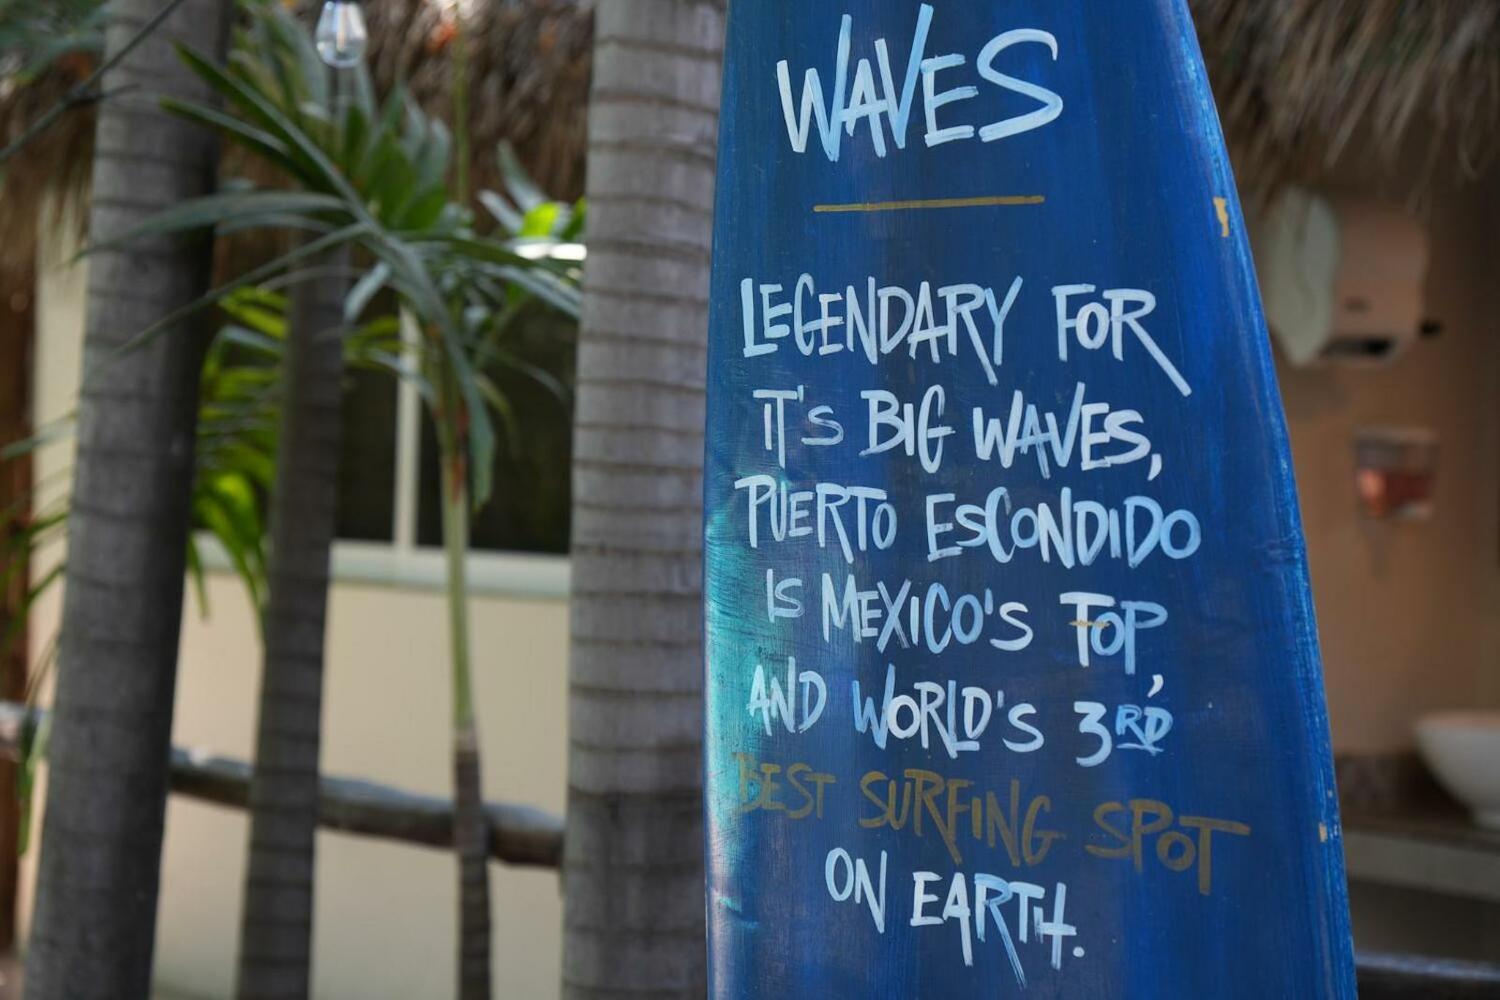 WAVES
LEGENDARY FOR
IT'S BIG WAVES,
PUERTO ESCONDIDO
IS MEXICO'S TOP,
AND WORLD'S 3RD
BEST SURFING SPOT
ON EARTH.